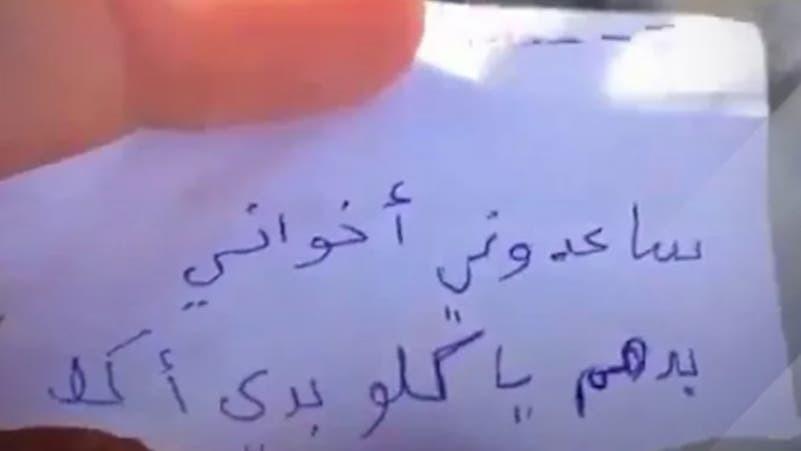 ساعدوني أخواني
بدهم ياكلو بدي أكلا